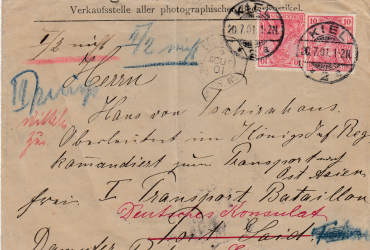 Verkaufsstelle aller photographischen
10 10
KIEL
20.7.01.1-2N
20.7.01.1-2N
1/2 nicht 1/2 nicht
AOUT
01
Herrn
Hans von Tschirnhaus.
Oberleutnant im Königs Inf Reg
kommandiert zum Transport
Ost Asien.
frei. I Transport Bataillon
Deutsches Konsulat
Port Said
Dampfer